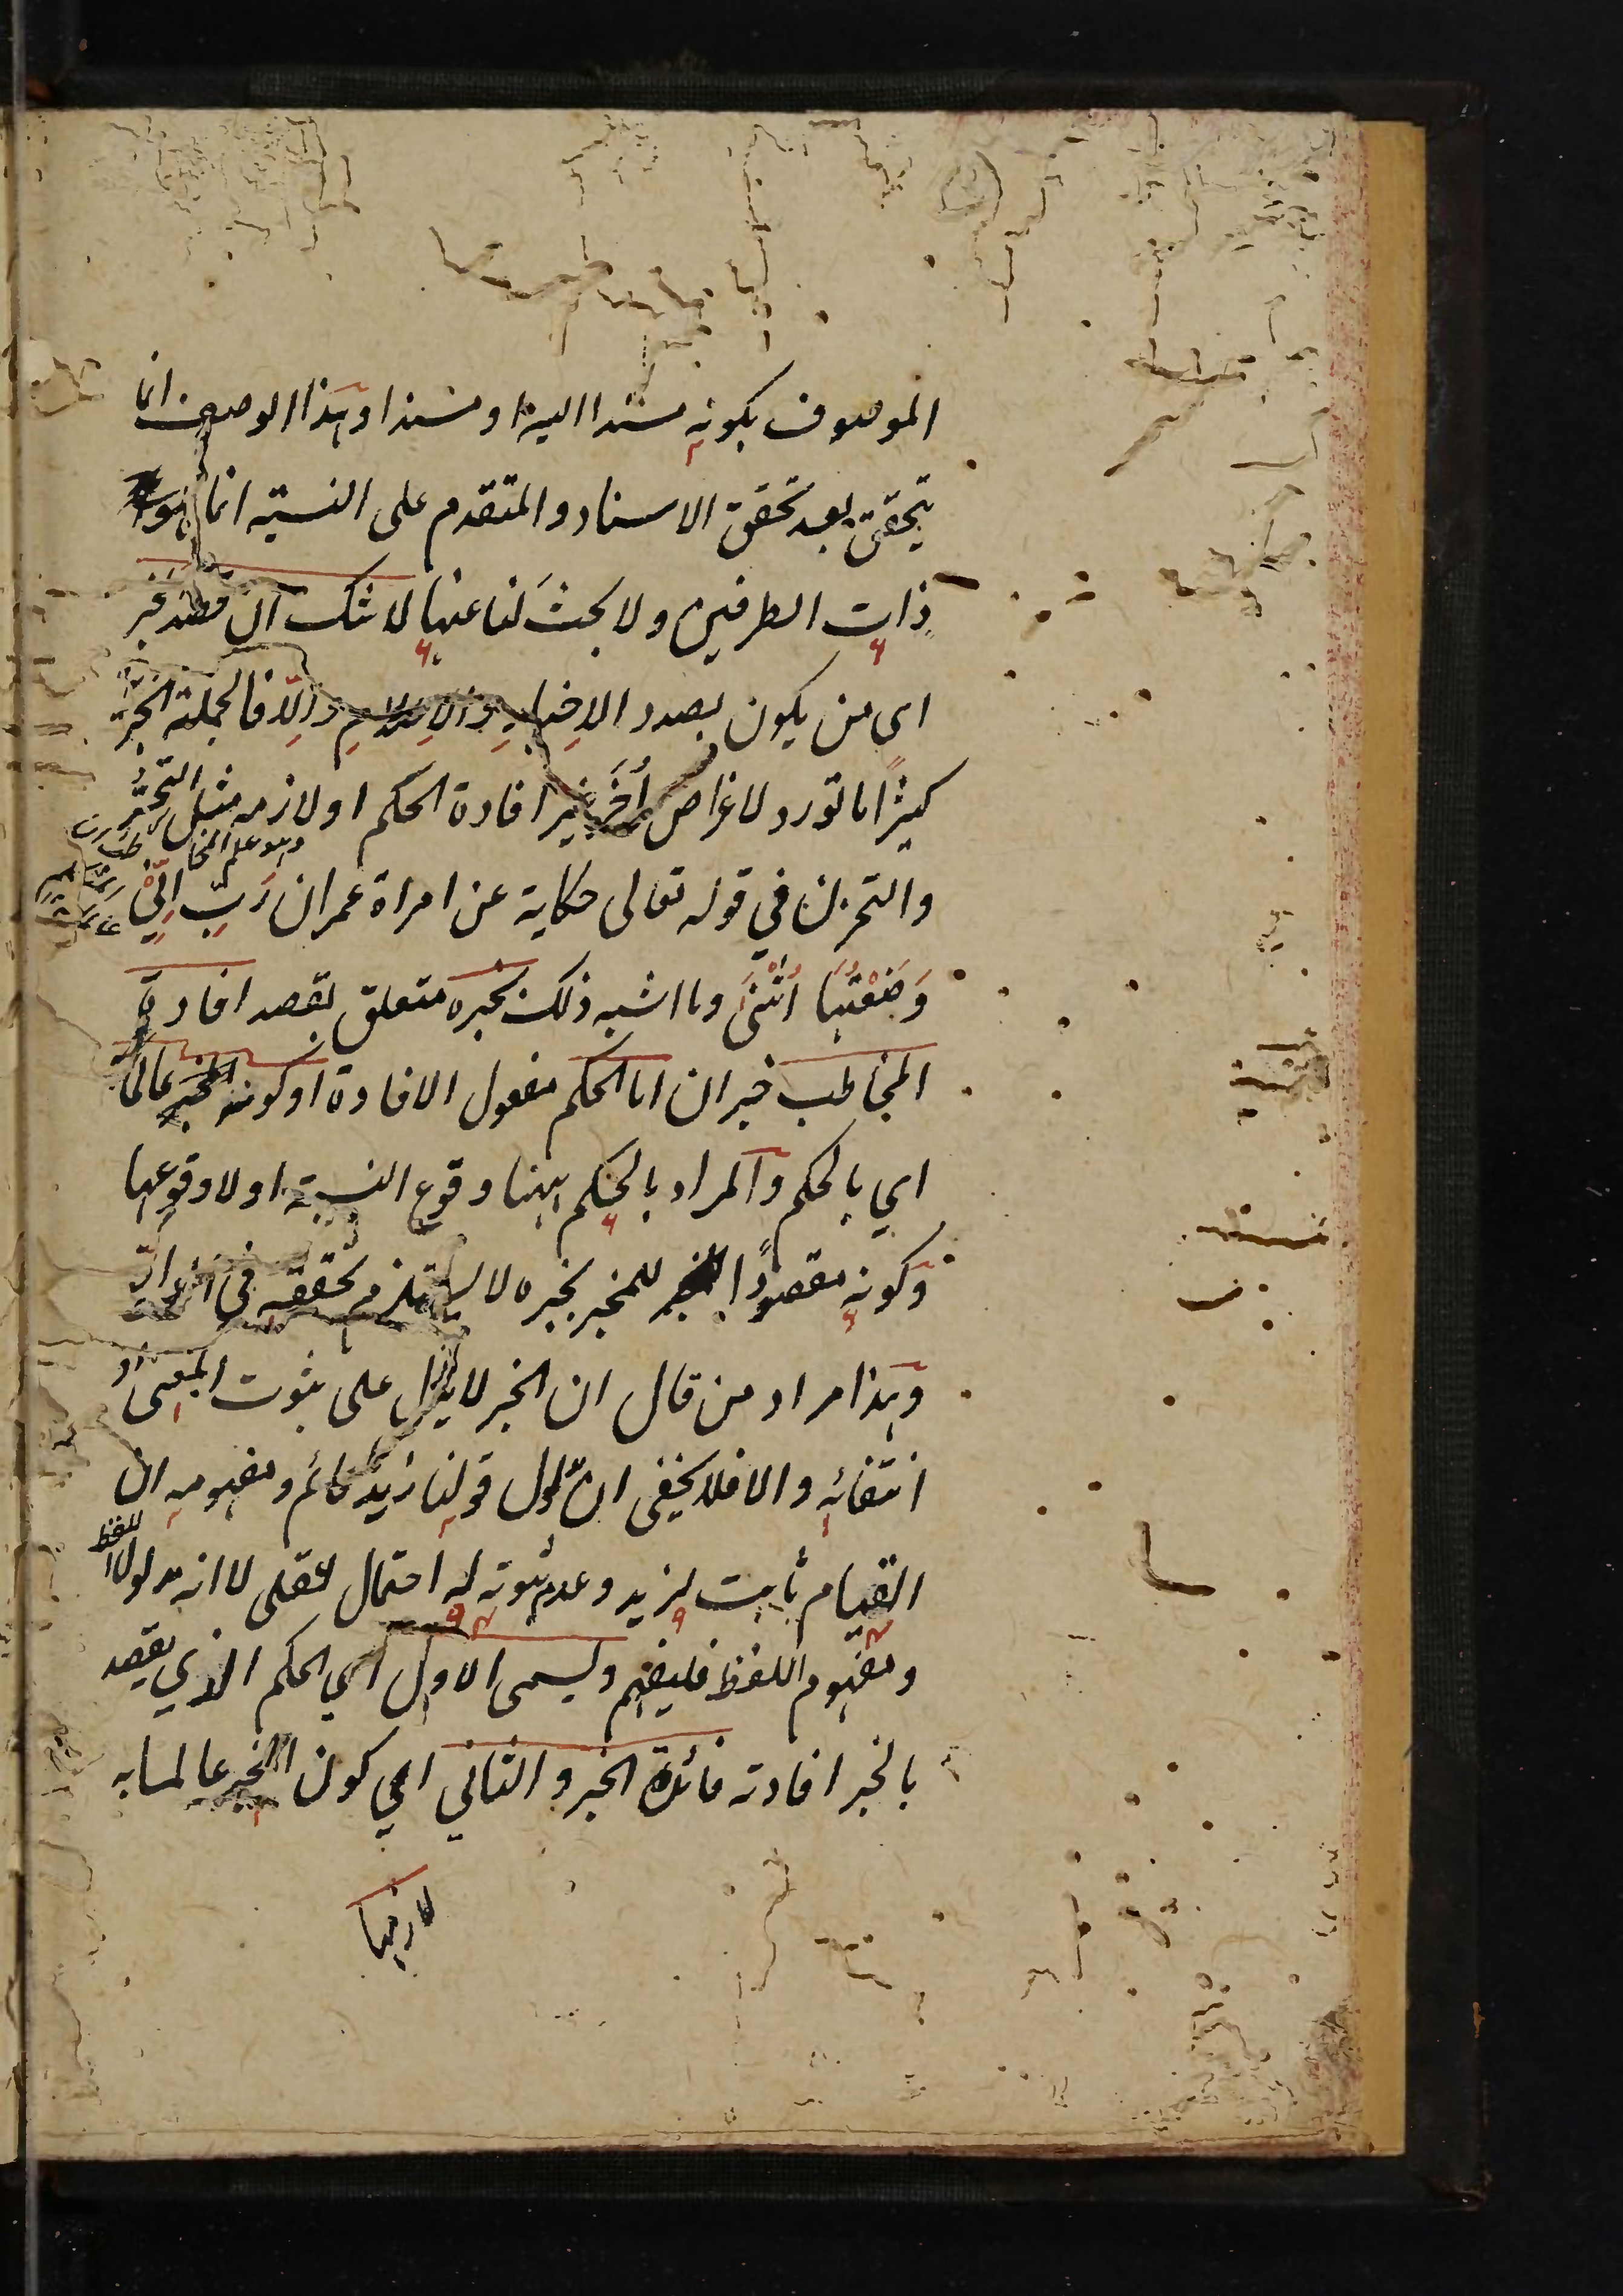 الموصوف بكونه مسندا اليه او مسندا وهذا الوصف انما
يتحقق بعد تحقق الاسناد والمتقدم على النسبة انما هو
ذات الطرفين ولا بحث لنا عنها لا شك ان قصد المخبر
اى من يكون بصدد الاِخبارِ والاِعلامِ والّا فالجملة الخبريّة
كثيرًا ما تورد لاغراض أُخَر غير افادة الحكم او لازمه مثل التحسُّر
والتحزن في قوله تعالى حكاية عن امراة عمران رَبِّ اِنِّيْ
وَضَعْتُهَا اُنْثَىٰ وما اشبه ذلك بخبره متعلق بقصد افادة
المخاطب خبر ان اما الحكم مفعول الافادة او كونه المخبر عالما به
اي بالحكم والمراد بالحكم ههنا وقوع النسبة او لا وقوعها
وكونه مقصودًا للمخبر بخبره لا يستلزم تحققه في الواقع
وهذا مراد من قال ان الخبر لا يدل على ثبوت المعنى او
انتفائه والا فلا يخفى ان مدلول قولنا زيد قائم ومفهومه ان
القيام ثابت لزيد وعدم ثبوته له احتمال عقلى لا انه مدلول اللفظ
ومفهوم اللفظ فليفهم ويسمى الاول اي الحكم الذي يقصد
بالخبر افادته فائدة الخبر والثاني اي كون المخبر عالما به
لازمها